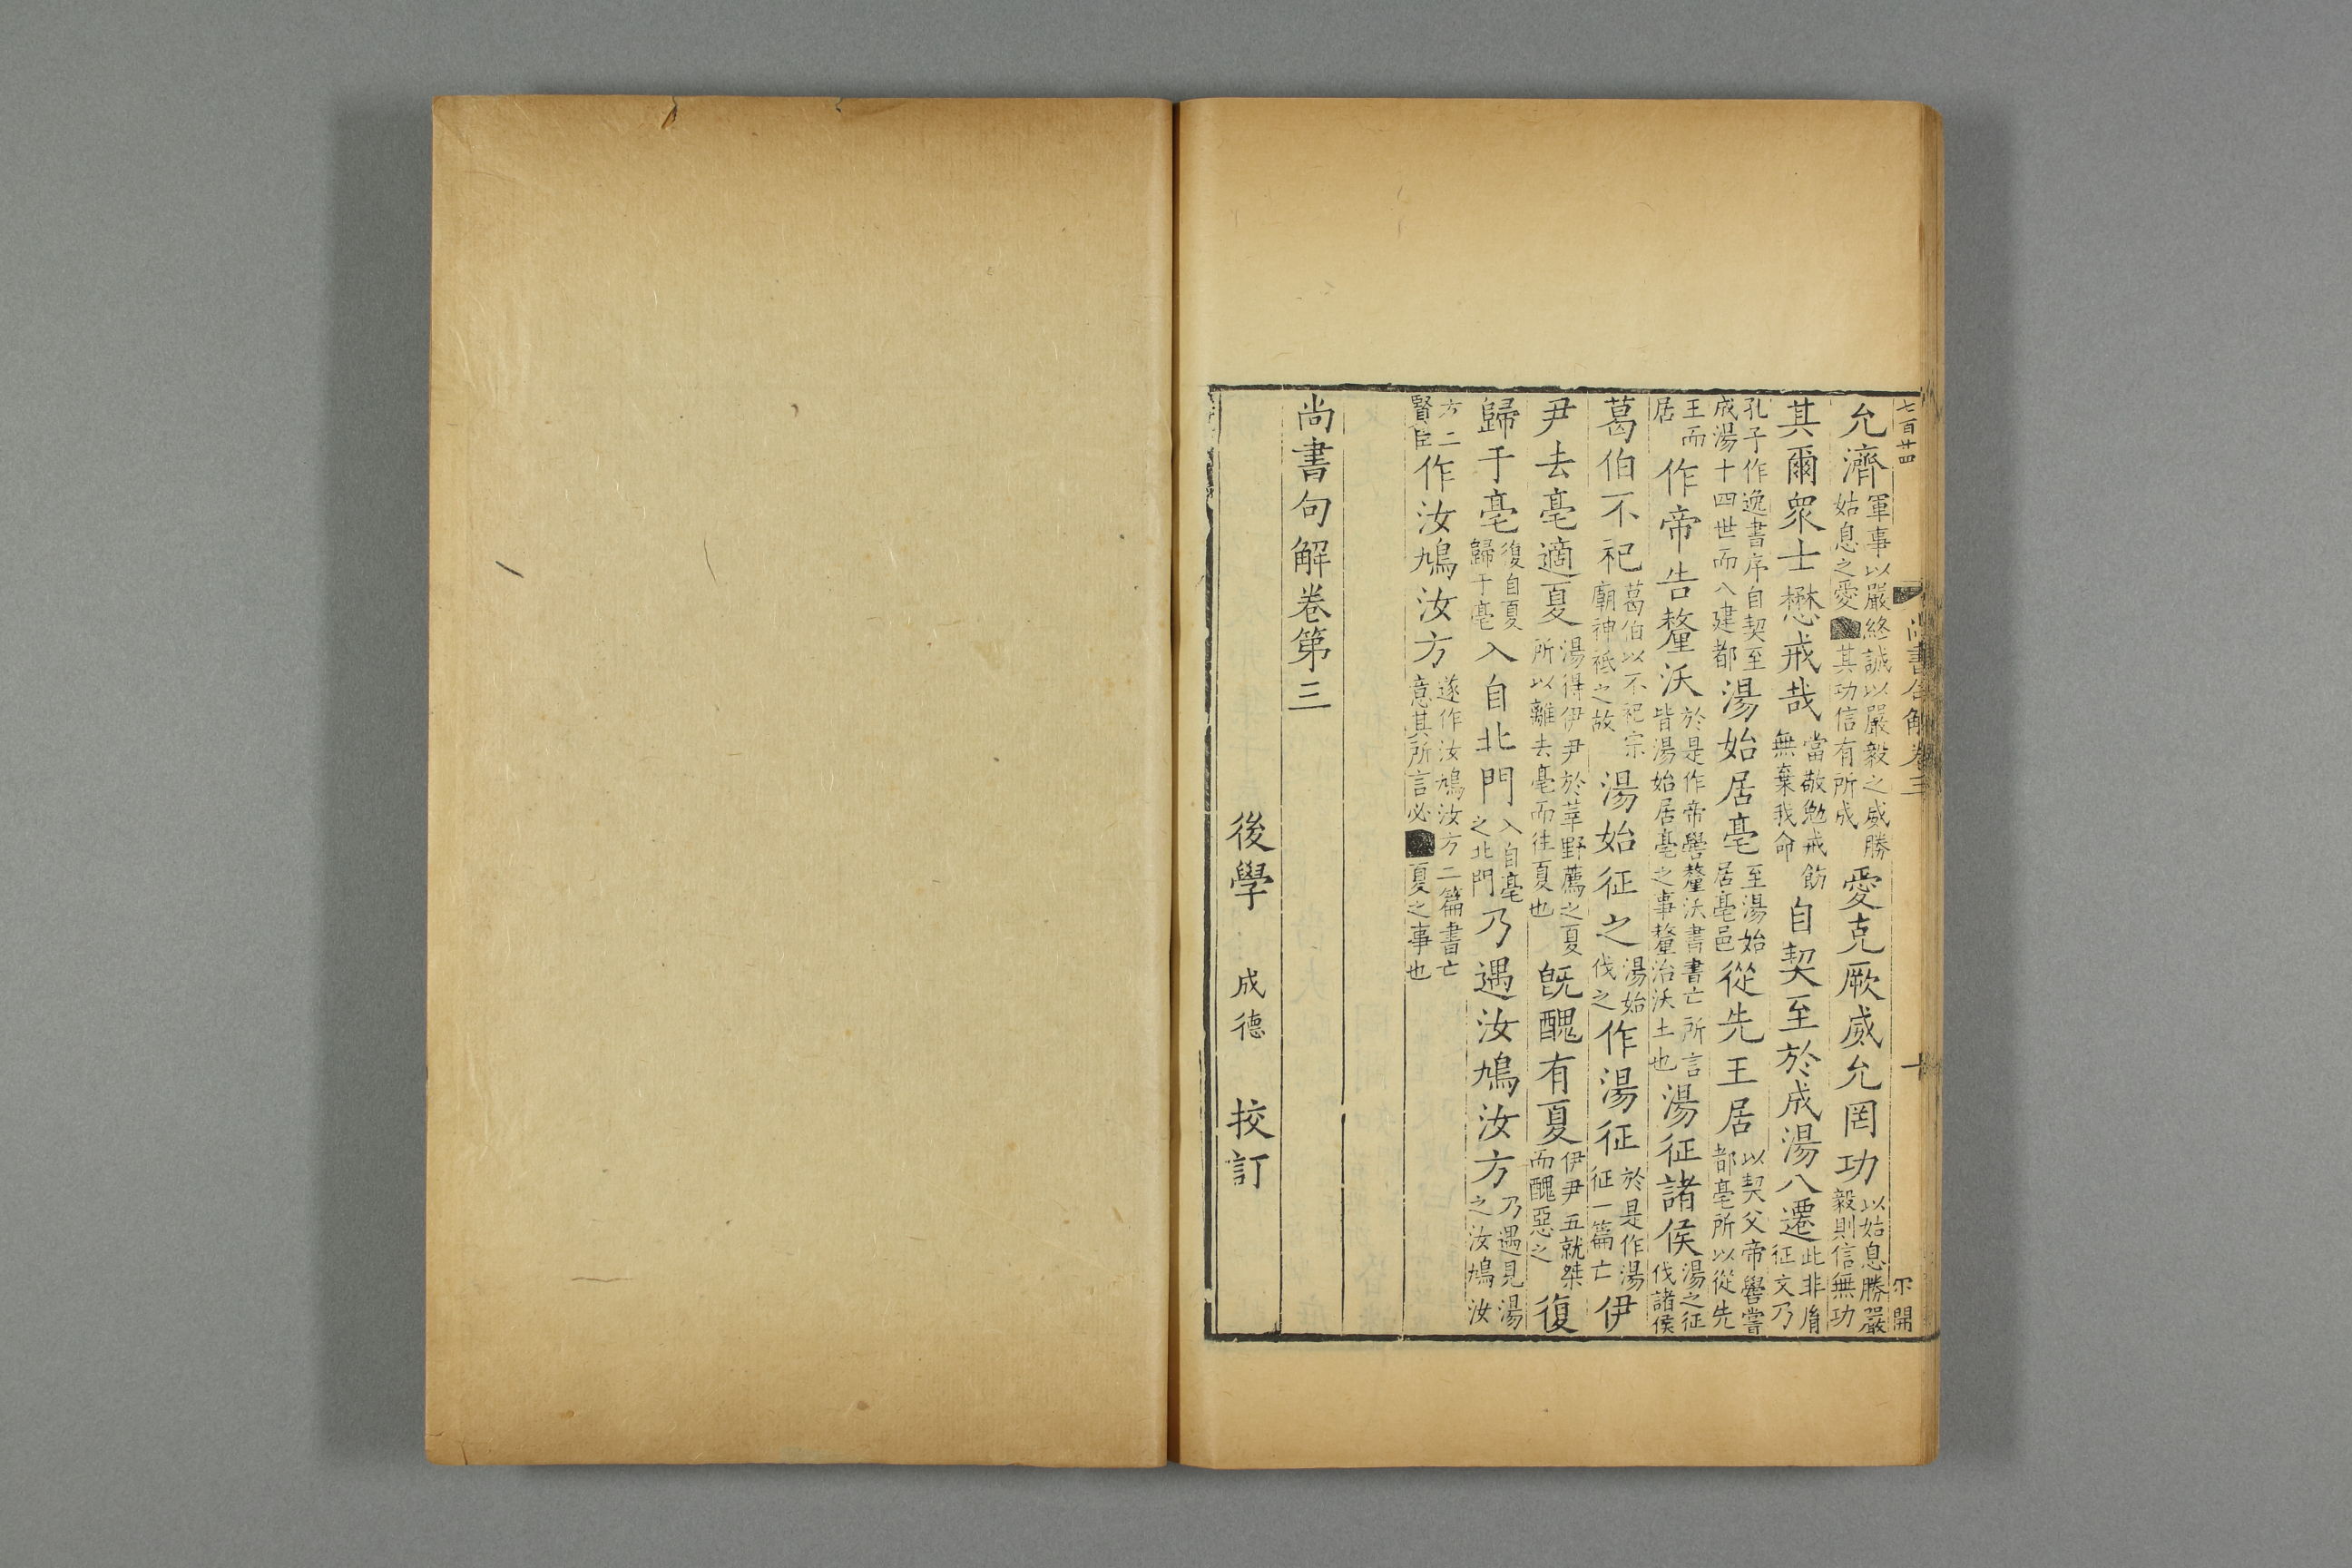 七百廿四
尚書句解卷三
十
允濟軍事以嚴終誠以嚴毅之威勝姑息之愛其功信有所成愛克厥威允罔功以姑息勝嚴毅則信無功
其爾眾士懋戒哉當敬勉戒飭無棄我命自契至於成湯八遷此非胤征文乃
孔子作逸書序自契至成湯十四世而八建都湯始居亳至湯始居亳邑從先王居以契父帝嚳嘗都亳所以從先
王而居作帝告釐沃於是作帝嚳釐沃書書亡所言皆湯始居亳之事釐治沃土也湯征諸侯湯之征伐諸侯
葛伯不祀葛伯以不祀宗廟神祗之故湯始征之湯始伐之作湯征於是作湯征一篇亡伊
尹去亳適夏湯得伊尹於莘野薦之夏所以離去亳而往夏也旣醜有夏伊尹五就桀而醜惡之復
歸于亳復自夏歸于亳入自北門入自亳之北門乃遇汝鳩汝方乃遇見湯之汝鳩汝
方二賢臣作汝鳩汝方遂作汝鳩汝方二篇書亡意其所言必夏之事也
尚書句解卷第三
後學 成德 校訂